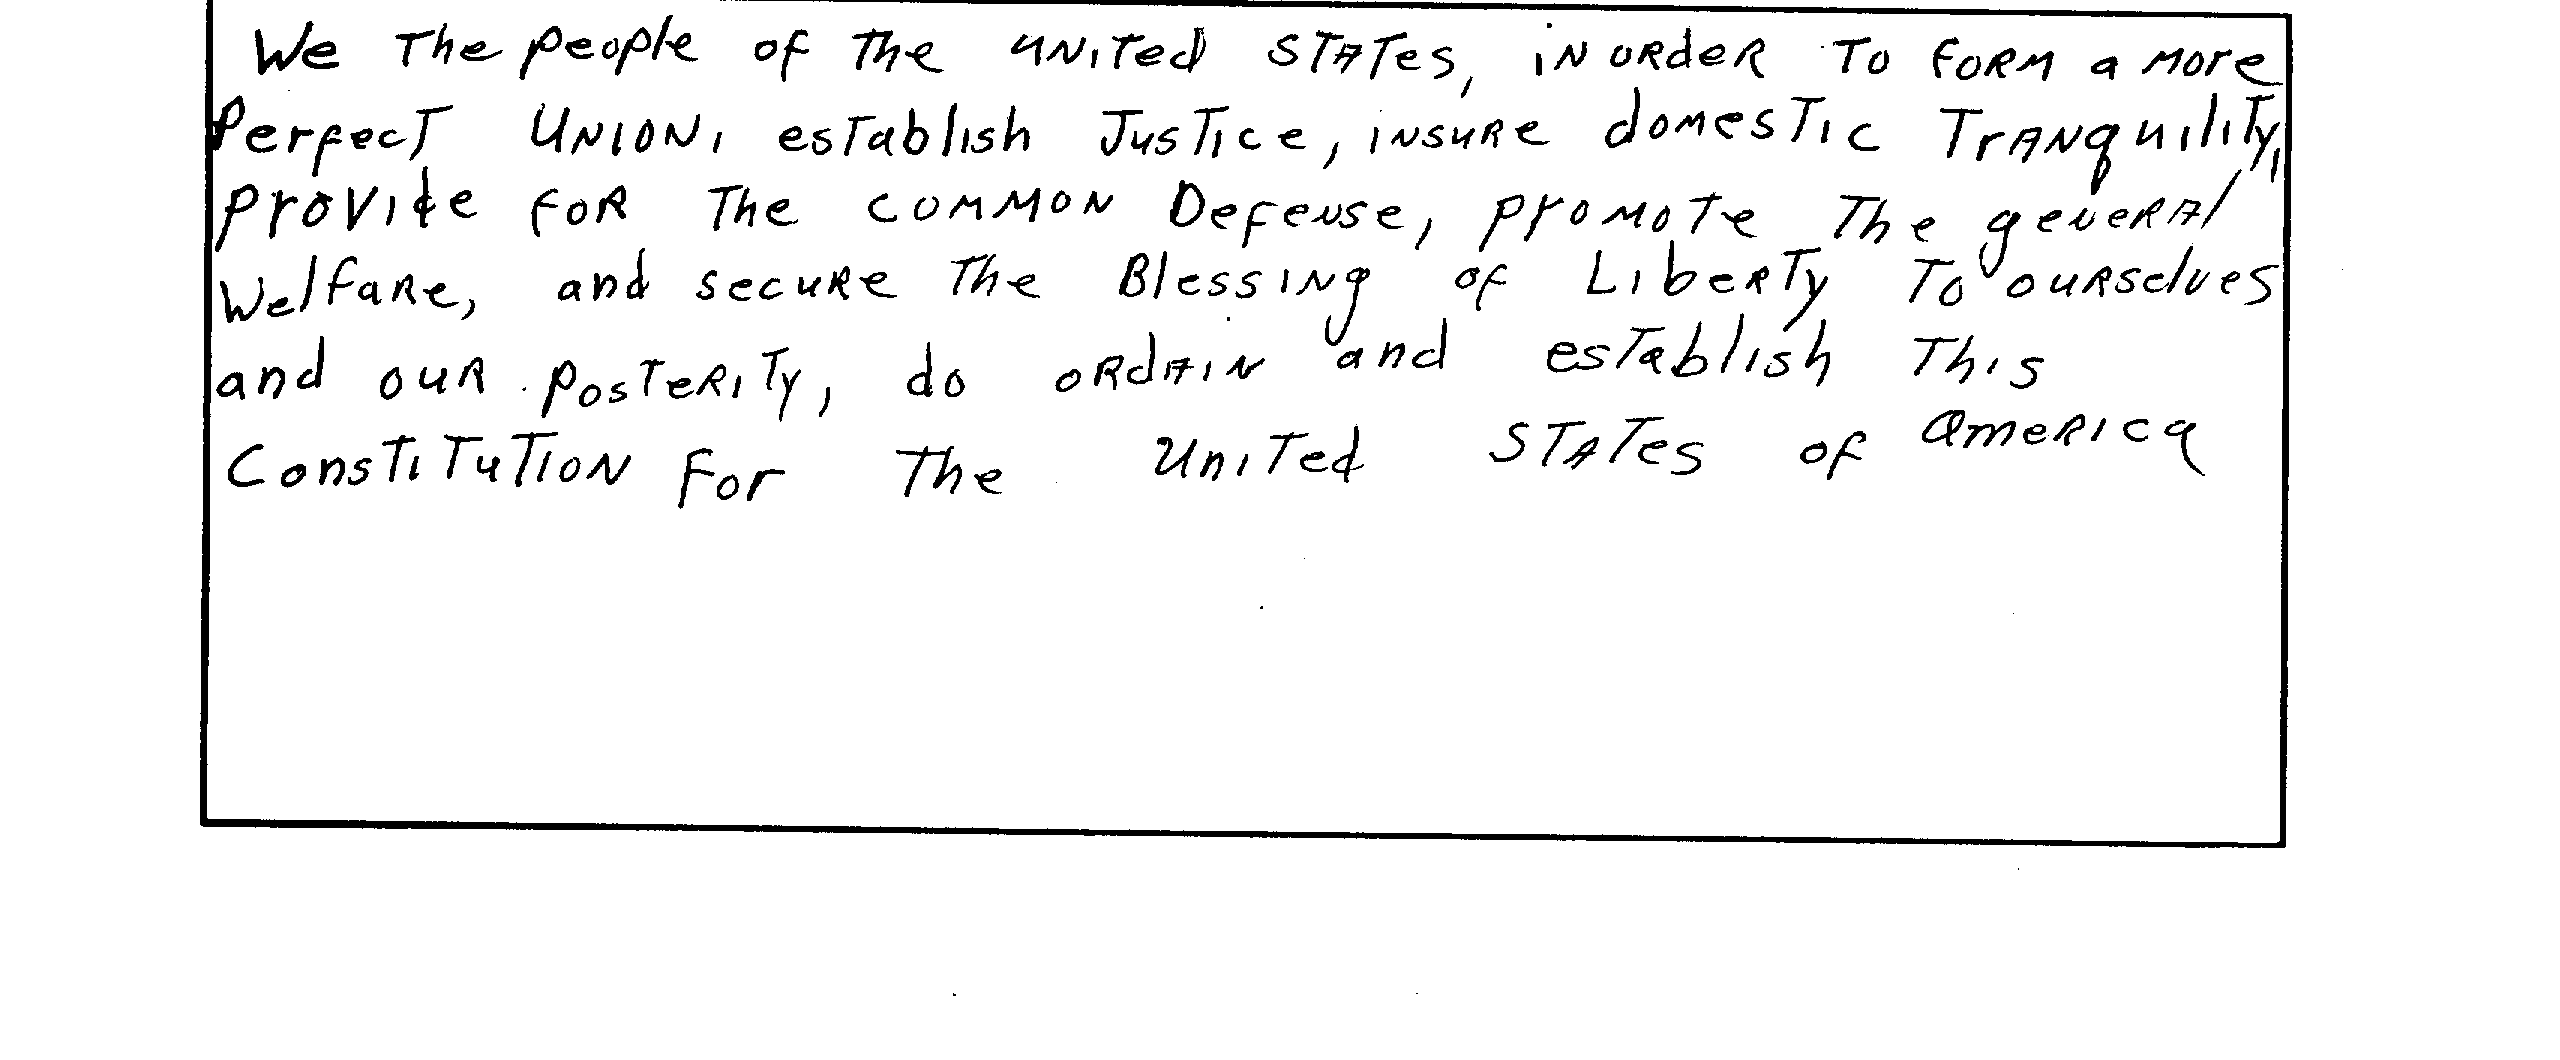 We The people of The united STATes, in order To form a more
Perfect Union, establish Justice, insure domestic Tranquility,
provide for The common Defense, promote The general
Welfare, and secure The Blessing of Liberty To ourselves
and our posterity, do ordain and establish This
Constitution For The United States of america